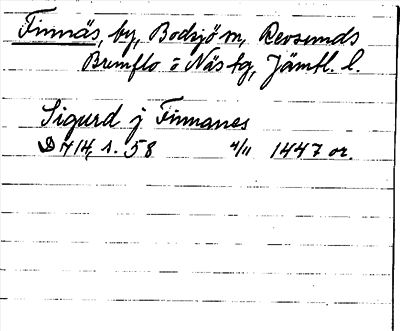 Finnäs, by, Bodsjö sn, Revsunds
Brunflo o Näs tg, Jämtl. l.
Sigurd j Finnanes
D 714, s. 58 4/11 1447 or.